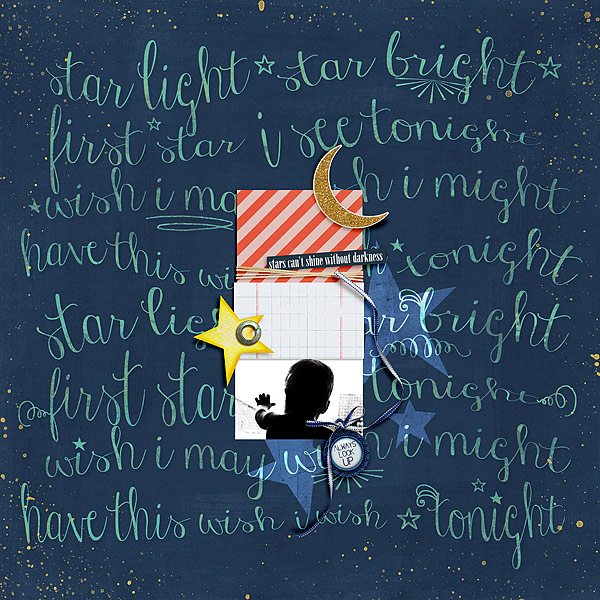 star light star bright
first star i see tonight
wish i may wish i might
have this wish i tonight
stars can't shine without darkness
star light star bright
first star tonight
wish i may wish i might
ALWAYS
LOOK
UP
have this wish i wish tonight